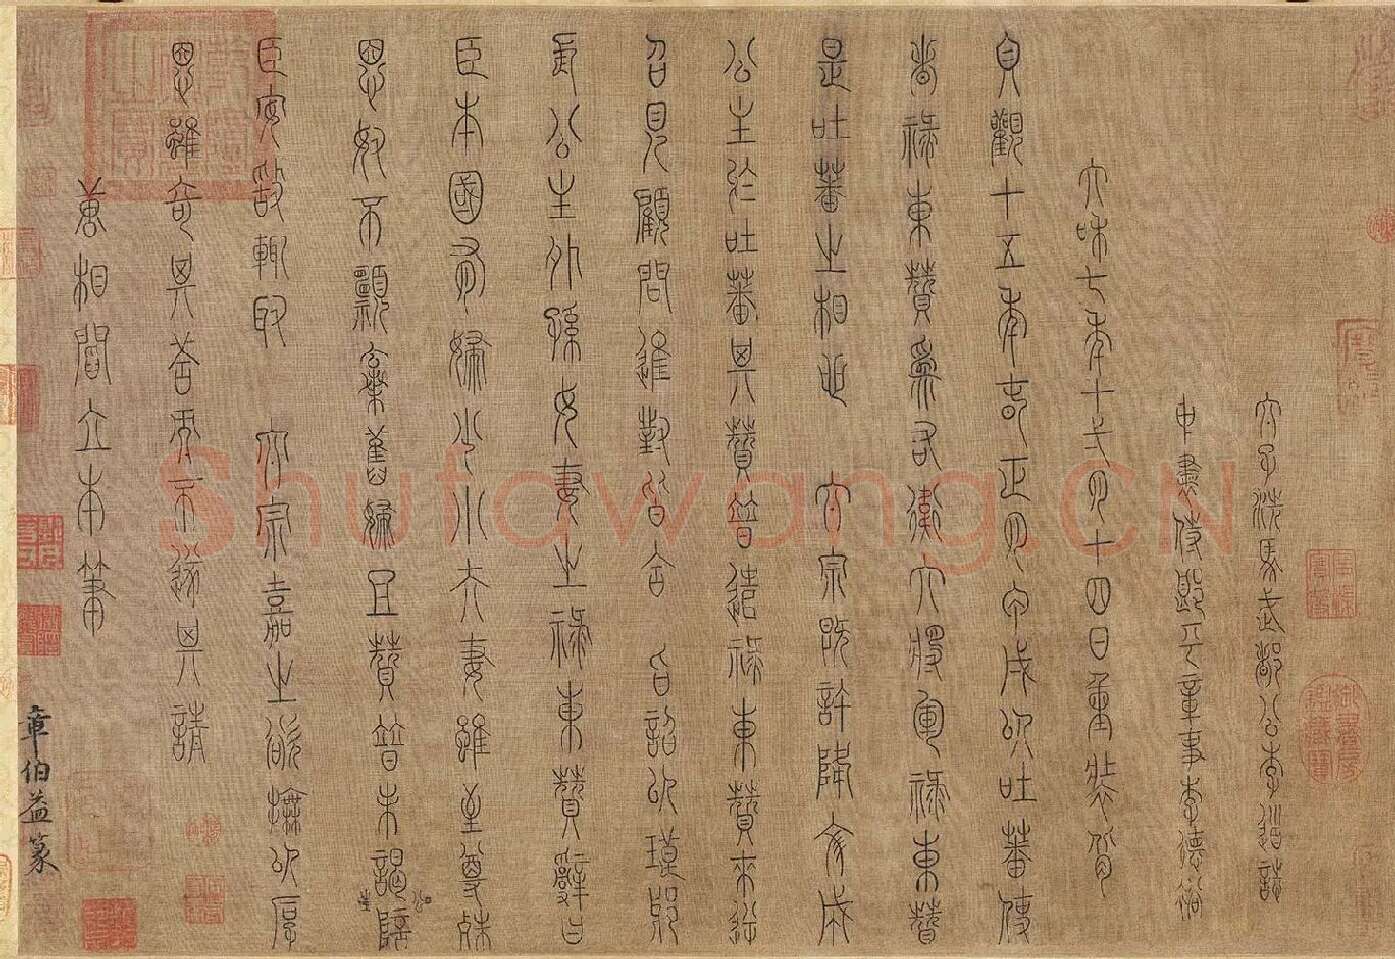 太子洗馬武都公李道誌
中書侍郎平章事李德裕
大和七年十一月十四日重裝背
貞觀十五年春正月甲戌以吐蕃使
者禄東贊爲右衛大將軍禄東贊
是吐蕃之相也 太宗既許降文成
公主於吐蕃其贊普遣禄東贊來逆
召見顧問進對皆合 旨詔以琅邪
長公主外孫女妻之禄東贊辭曰
臣本國有婦少小夫妻雖至尊殊
恩奴不願棄舊婦且贊普未謁陪公主
臣安敢輒取 太宗嘉之欲撫以厚
恩雖奇其答而不遂其請
唐相閻立本筆
章伯益篆
Shufawang.CN